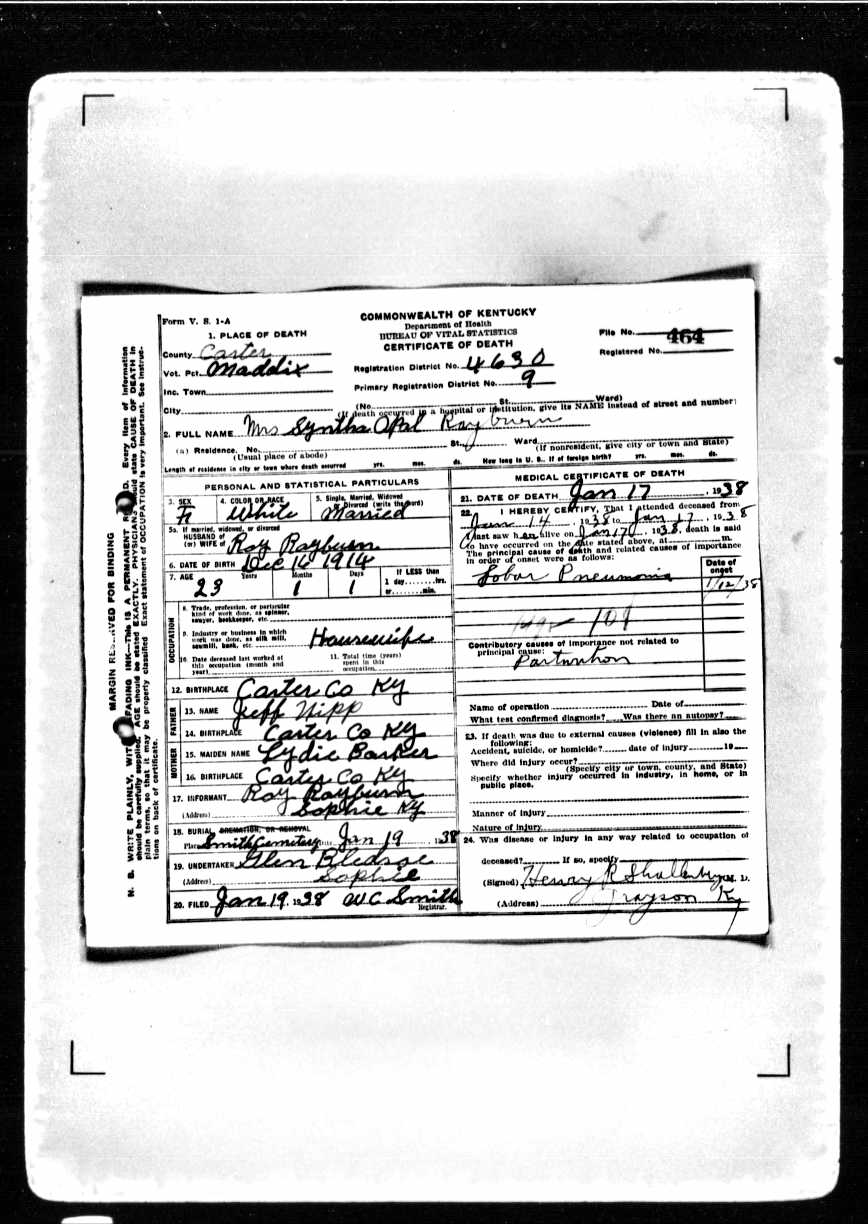 Form V. S. 1-A
COMMONWEALTH OF KENTUCKY
Department of Health
BUREAU OF VITAL STATISTICS
CERTIFICATE OF DEATH
File No. 464
Registered No.
1. PLACE OF DEATH
County Carter
Vot. Pct. Maddix
Inc. Town
City
Registration District No. 4630
Primary Registration District No. 9
(No. St. Ward)
(If death occurred in a hospital or institution, give its NAME instead of street and number)
2. FULL NAME Mrs Syntha Opal Rayburn
(a) Residence. No. St. Ward.
(Usual place of abode) (If nonresident, give city or town and State)
Length of residence in city or town where death occurred yrs. mos. ds. How long in U. S., if of foreign birth? yrs. mos. ds.
PERSONAL AND STATISTICAL PARTICULARS
3. SEX 4. COLOR OR RACE 5. Single, Married, Widowed
or Divorced (write the word)
F White Married
5a. If married, widowed, or divorced
HUSBAND of
(or) WIFE of Roy Rayburn
6. DATE OF BIRTH Dec 16 1914
7. AGE Years Months Days If LESS than
23 1 1 1 day, hrs.
or min.
OCCUPATION
8. Trade, profession, or particular
kind of work done, as spinner,
sawyer, bookkeeper, etc.
9. Industry or business in which
work was done, as silk mill,
sawmill, bank, etc. Housewife
10. Date deceased last worked at
this occupation (month and
year)
11. Total time (years)
spent in this
occupation
12. BIRTHPLACE Carter Co Ky
FATHER
13. NAME Jeff Nipp
14. BIRTHPLACE Carter Co Ky
MOTHER
15. MAIDEN NAME Lydie Barker
16. BIRTHPLACE Carter Co Ky
17. INFORMANT Roy Rayburn
(Address) Sophie Ky
18. BURIAL, CREMATION, OR REMOVAL
Place Smith Cemetery Date Jan 19, 1938
19. UNDERTAKER Glen Bledsoe
(Address) Sophie
20. FILED Jan 19, 1938 W C Smith
Registrar.
MEDICAL CERTIFICATE OF DEATH
21. DATE OF DEATH Jan 17, 1938
22. I HEREBY CERTIFY, That I attended deceased from
Jan 14, 1938 to Jan 17, 1938
I last saw her alive on Jan 17, 1938, death is said
to have occurred on the date stated above, at m.
The principal cause of death and related causes of importance
in order of onset were as follows:
Date of
onset
Lobar Pneumonia 1/12/38
108
Contributory causes of importance not related to
principal cause:
Parturition
Name of operation Date of
What test confirmed diagnosis? Was there an autopsy?
23. If death was due to external causes (violence) fill in also the
following:
Accident, suicide, or homicide? date of injury 19
Where did injury occur?
(Specify city or town, county, and State)
Specify whether injury occurred in industry, in home, or in
public place.
Manner of injury
Nature of injury
24. Was disease or injury in any way related to occupation of
deceased? If so, specify
(Signed) Henry R M. D.
(Address) Grayson Ky
MARGIN RESERVED FOR BINDING
N. B. WRITE PLAINLY, WITH UNFADING INK—This IS A PERMANENT RECORD. Every item of information
should be carefully supplied. AGE should be stated EXACTLY. PHYSICIANS should state CAUSE OF DEATH in
plain terms, so that it may be properly classified. Exact statement of OCCUPATION is very important. See instruc-
tions on back of certificate.